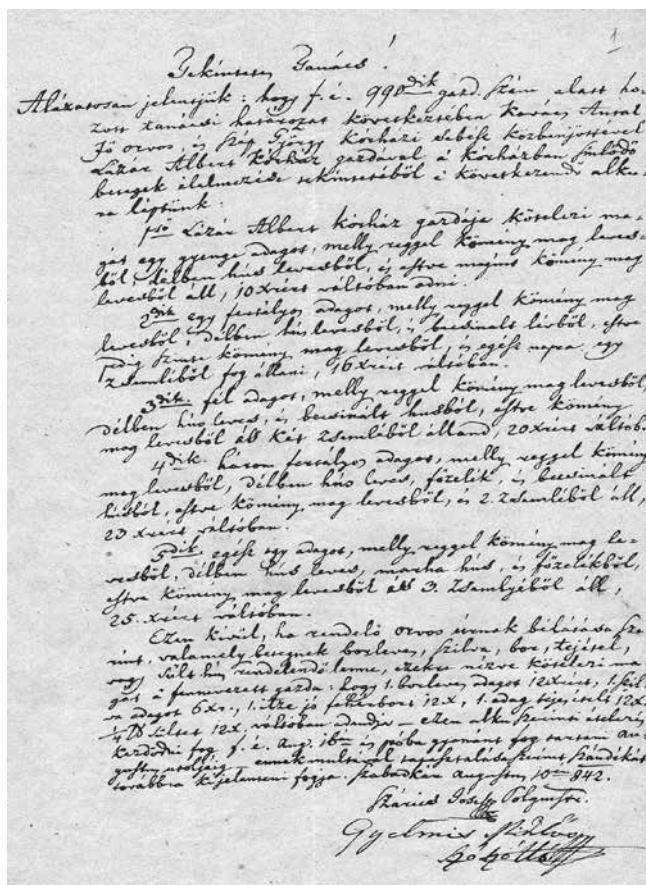 1
Tekintetes Tanács!
Alázatosan jelentjük: hogy f. é. 990dik gazd. szám alatt ho-
zott tanácsi határozat következtében Kovács Antal
Fő orvos, és Szép György Kórházi sebész közbenjöttével
Lázár Albert Kórház gazdával a kórházban sinlődő
betegek élelmezése tekintetéből e következendő alku-
ra léptünk.
1ső Lázár Albert kórház gazdája kötelezi ma-
gát egy gyenge adagot, melly reggel kömény mag leves-
ből, délben hús levesből, és estve megint kömény mag
levesből áll, 10 xrért váltóban adni.
2dik egy fertályos adagot, melly reggel kömény mag
levesből, délben hús levesből, és becsinalt lévből, estve
pedig szinte kömény mag levesből, és egész napra egy
zsemliből fog állani, 16 xrért váltóban.
3dik. fél adagot, melly reggel kömény mag levesből,
délben hús leves, és becsinált husból, estve kömény
mag levesből áll két zsemléből álland, 20 xrért váltób.
4dik. három fertályos adagot, melly reggel kömény
mag levesből, délben hús leves, főzelék, és becsinált
húsból, estve kömény mag levesből, és 2. zsemliből áll,
23 xrért váltóban.
5dik egész egy adagot, melly reggel kömény mag le-
vesből, délben hús leves, marha hús, és főzelékből,
estve kömény mag levesből áll 3. zsemlyéből áll,
25. xrért váltóban.
Ezen kivül, ha rendelő orvos úrnak bélátása sze-
rint, valamely betegnek borleves, szilva, bor, tejétel,
vagy sült hús rendelendő lenne, ezekre nézve kötelezi ma-
gát a fennevezett gazda: hogy 1. borleves adagot 12 xrért, 1. szil-
va adagot 6 xr., 1. itze jó fehérbort 12 x, 1. adag tejételt 12 x.
1/4 sültet 12 x. váltóban adandja – ezen alku szerinti ételezés
kezdődni fog f. é. Aug. 16án és próba gyanánt fog tartani Au-
gustus utoljáig – ennek multával tapasztalása szerint szándékát
továbbra kijelenteni fogja. Szabadkán Augustus 10én 842.
József Polgmstr.
Gyelmis